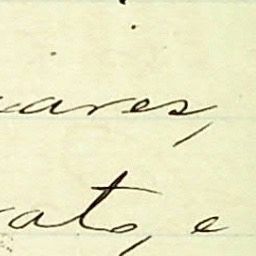 ares,
ato, e